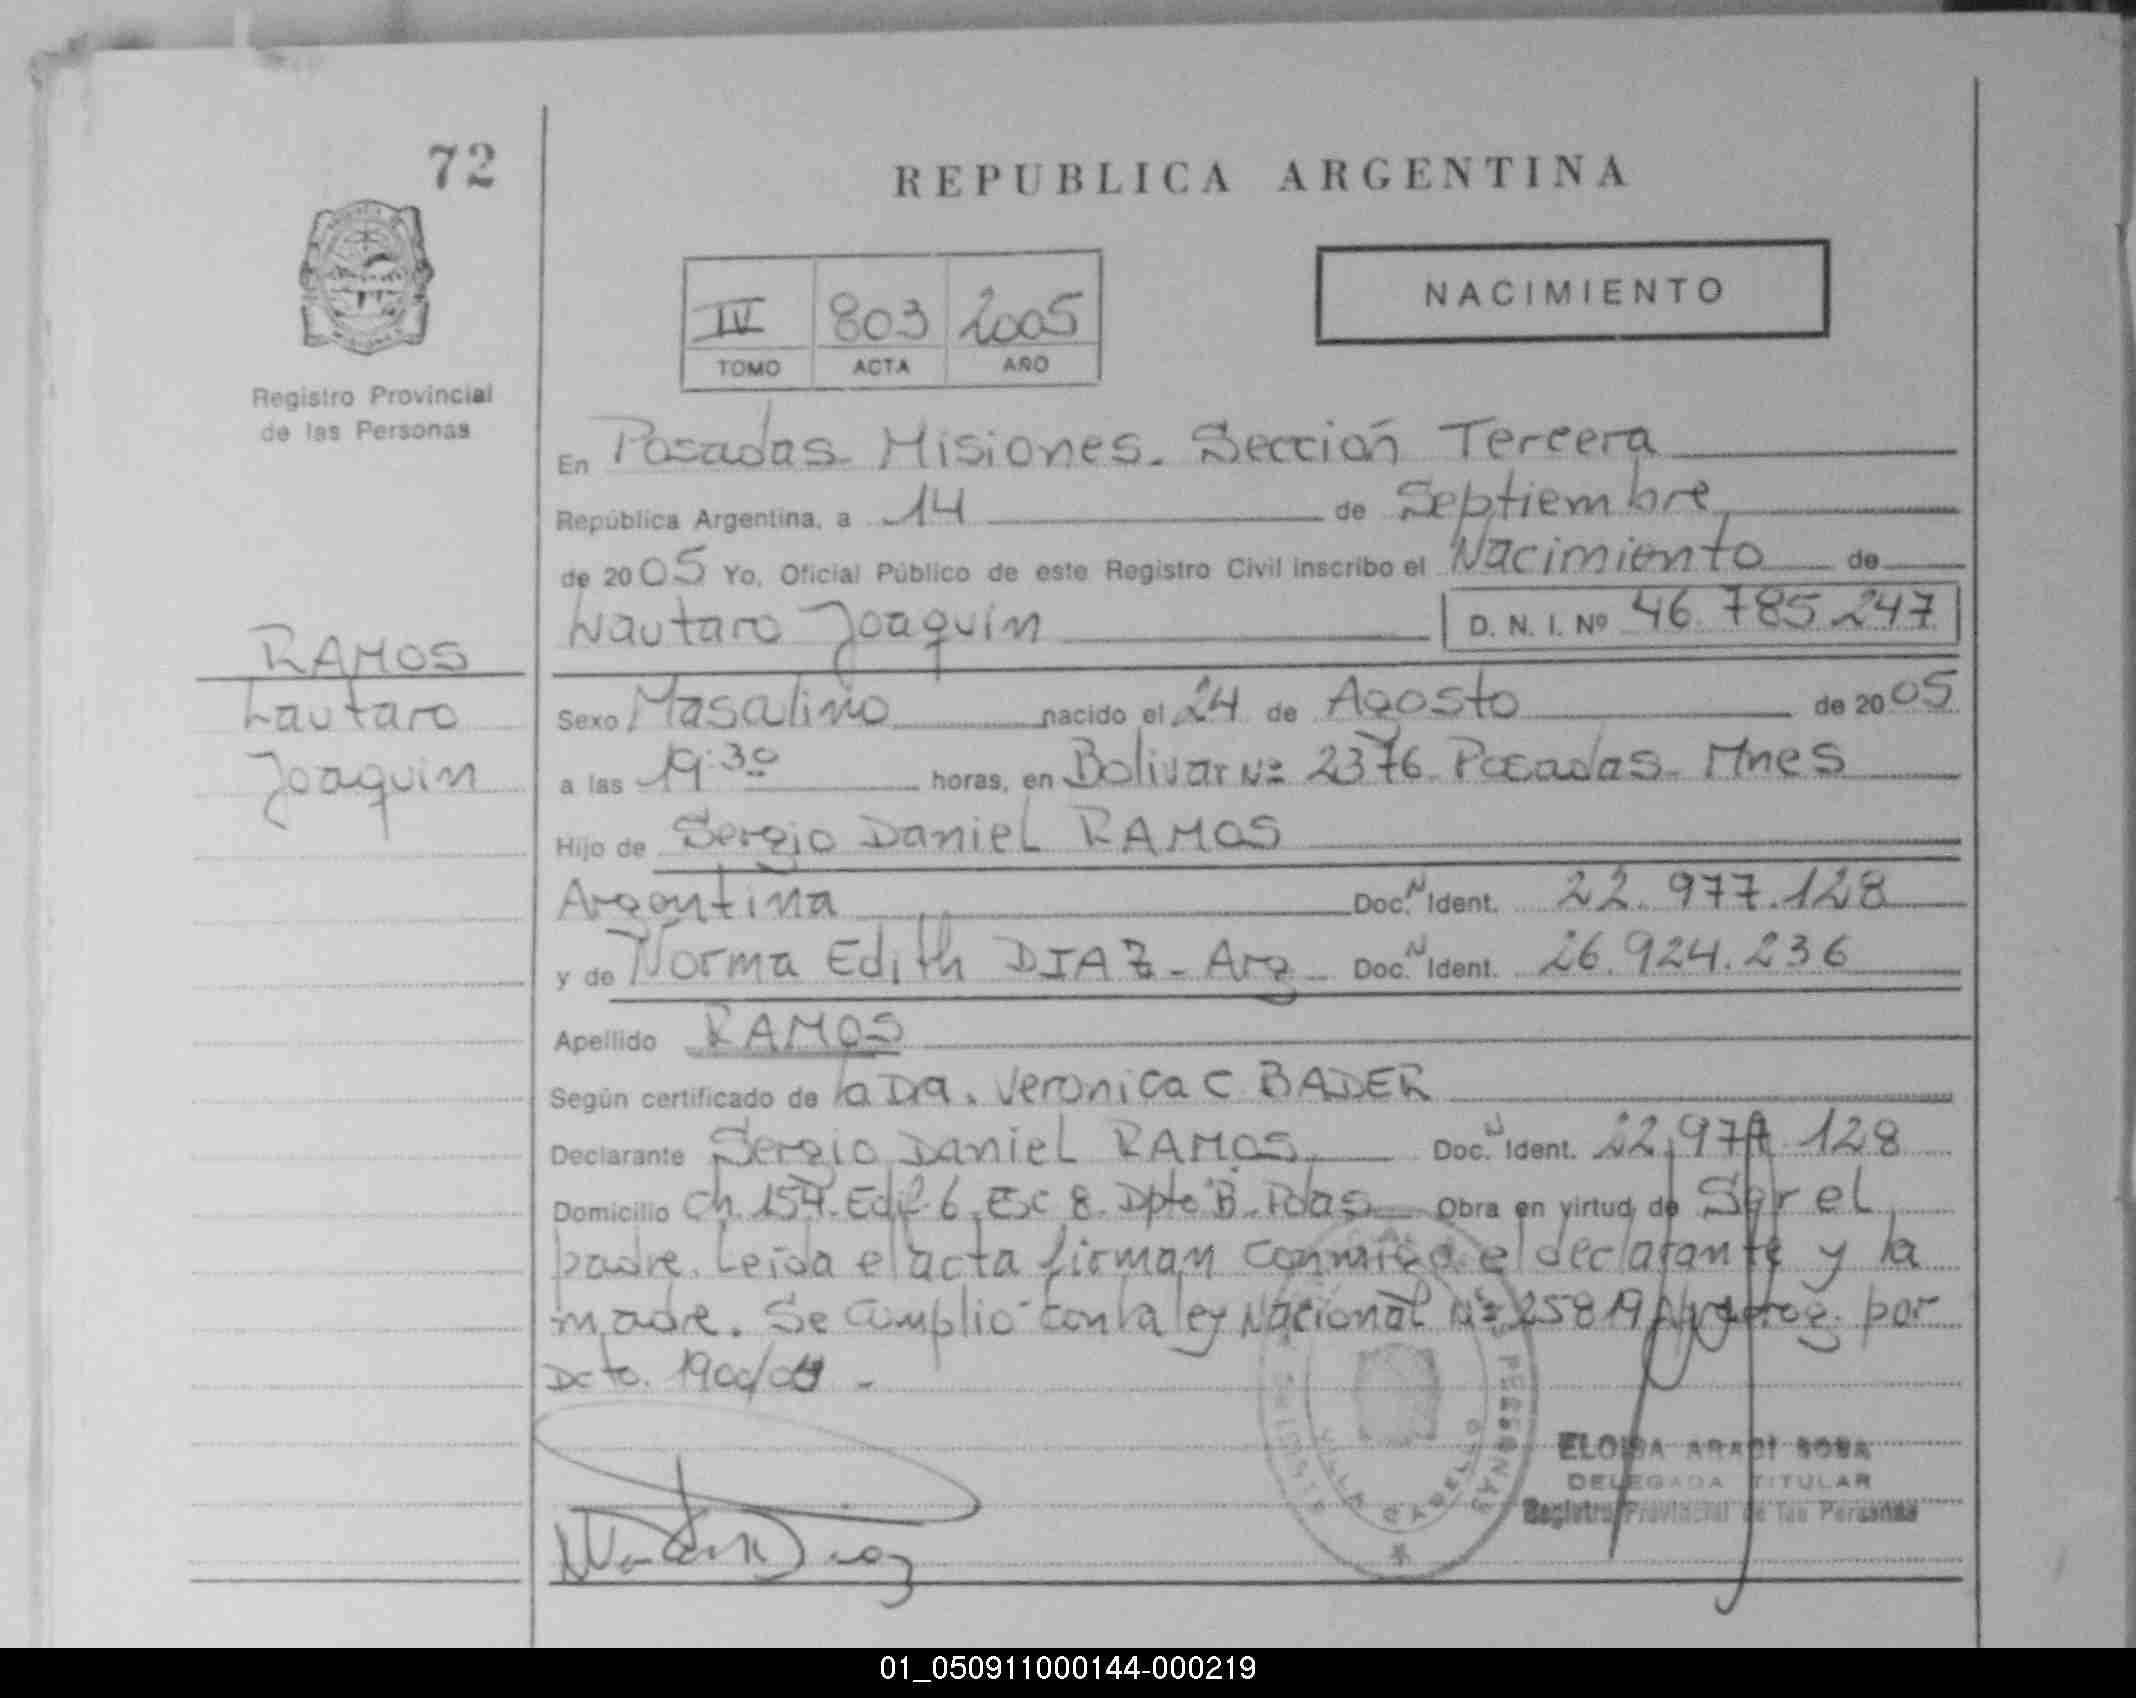 72
REPUBLICA ARGENTINA
IV 803 2005
TOMO ACTA AÑO
NACIMIENTO
Registro Provincial
de las Personas
En Posadas - Misiones - Sección Tercera
República Argentina, a 14 de Septiembre
de 2005 Yo, Oficial Público de este Registro Civil inscribo el Nacimiento de
Lautaro Joaquín D. N. I. Nº 46.785.247
RAMOS
Lautaro
Joaquín
Sexo Masculino nacido el 24 de Agosto de 2005
a las 19:30 horas, en Bolivar Nº 2376 Posadas - Mnes
Hijo de Sergio Daniel RAMOS
Argentina Doc. N Ident. 22.977.128
y de Norma Edith DIAZ - Arg Doc. N Ident. 26.924.236
Apellido RAMOS
Según certificado de la Dra. Veronica C BADER
Declarante Sergio Daniel RAMOS Doc. N Ident. 22.977.128
Domicilio Ch. 154. Edif 6. Esc 8. Dpto B. Pdas Obra en virtud de Ser el
padre. Leida el acta firman conmigo el declarante y la
madre. Se cumplio con la ley Nacional Nº 25819 prorrog. por
Dcto. 1900/04 -
VILLA CABELLO
PERSONAS
ELOISA ARASI SOSA
DELEGADA TITULAR
Registro Provincial de las Personas
01_050911000144-000219